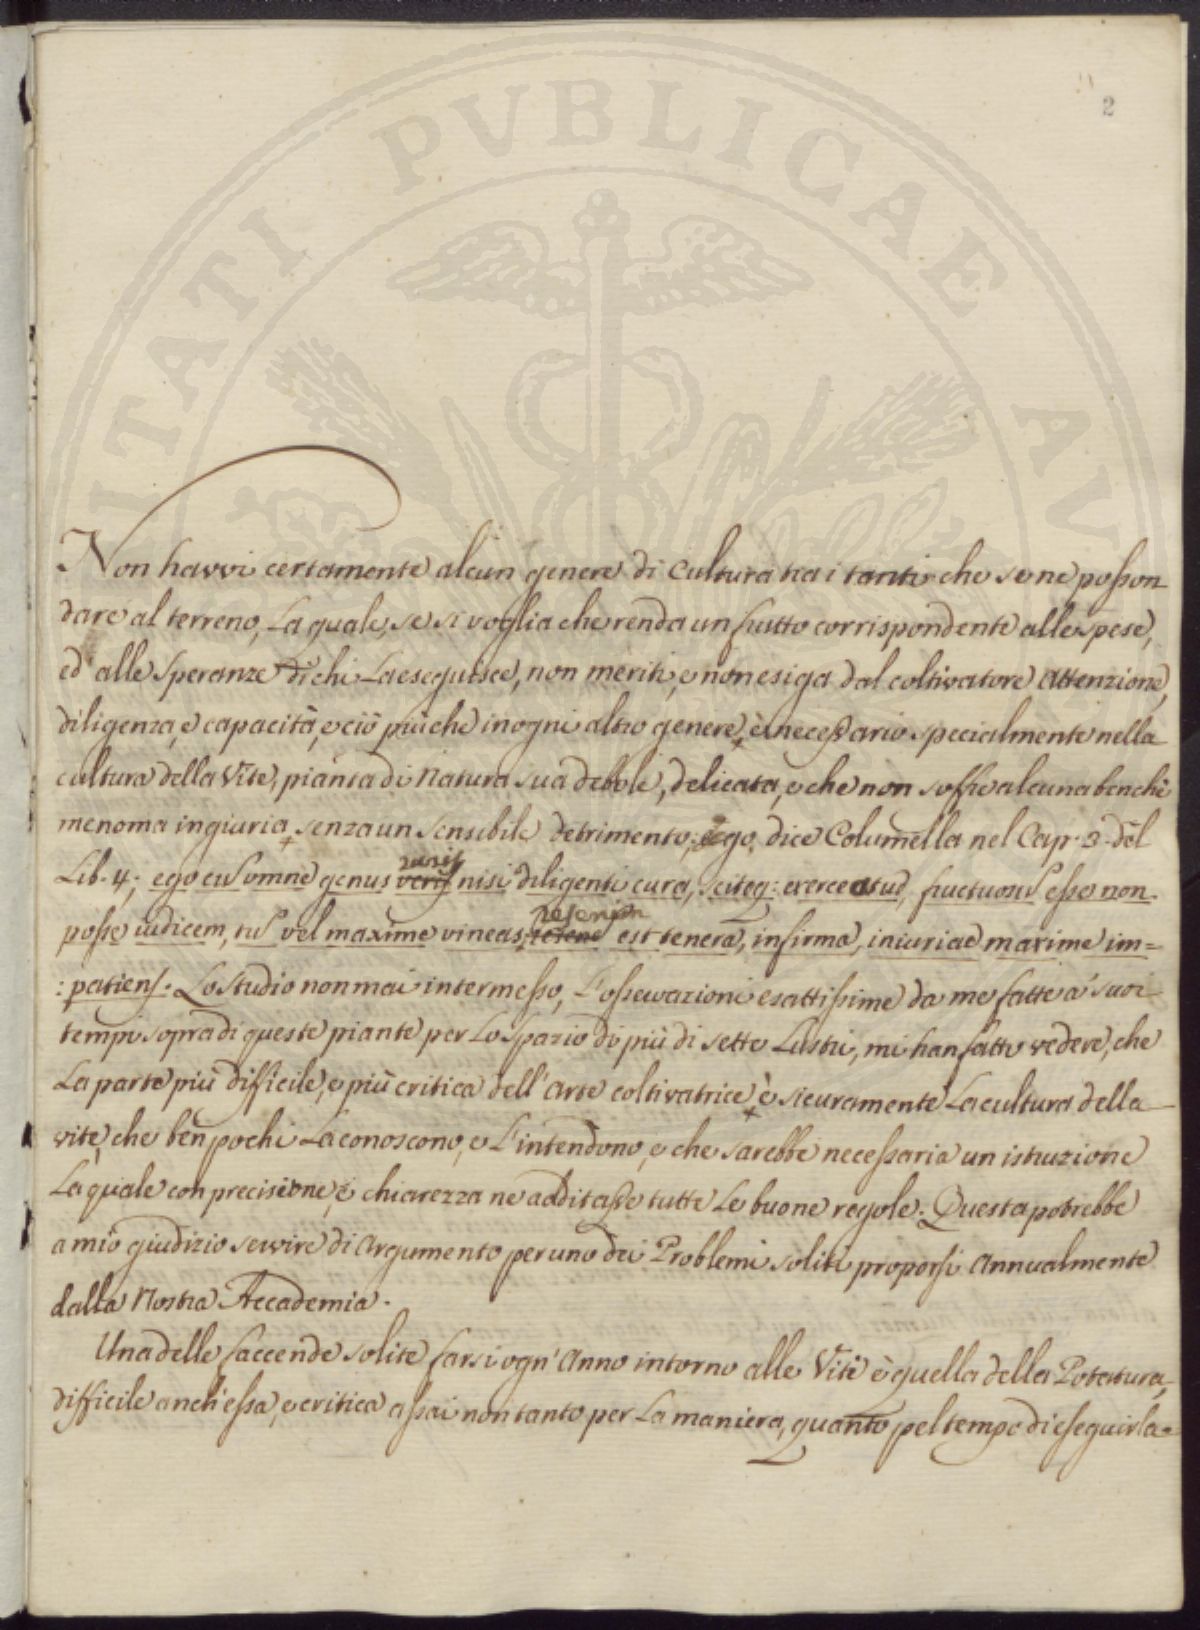 PVBLICAE
ITATI
AV
2
Non havvi certamente alcun genere di Cultura tra i tanti che se ne posson
dare al terreno, La quale, se si voglia che renda un frutto corrispondente alle spese,
ed alle speranze di chi La eseguisce, non meriti, e non esiga dal coltivatore Attenzione,
diligenza, e capacità, e ciò più che in ogni altro genere è necessario specialmente nella
cultura della Vite, pianta di Natura sua debole, delicata, e che non soffre alcuna benchè
menoma ingiuria senza un sensibile detrimento; ego, dice Columella nel Cap. 3. del
ruris
Lib. 4; ego cum omne genus nisi diligenti cura, sciteq: exerceatur, fructuosum esse non
posse iudicem, tum vel maxime vineas, est tenera, infirma, iniuriae maxime im=
:patiens. Lo studio non mai intermesso, L'osservazioni esattissime da me fatte a' suoi
tempi sopra di queste piante per Lo spazio di più di sette Lustri, mi han fatto vedere, che
La parte più difficile, e più critica dell'Arte coltivatrice è sicuramente La cultura della
vite, che ben pochi La conoscono, e L'intendono, e che sarebbe necessaria un istruzione
La quale con precisione, e chiarezza ne additasse tutte Le buone regole. Questa potrebbe
a mio giudizio servire di Argumento per uno dei Problemi soliti proporsi Annualmente
dalla Nostra Accademia.
Una delle faccende solite farsi ogn'Anno intorno alle Viti è quella della Potatura,
difficile anch'essa, e critica assai non tanto per La maniera, quanto pel tempo di eseguirla.